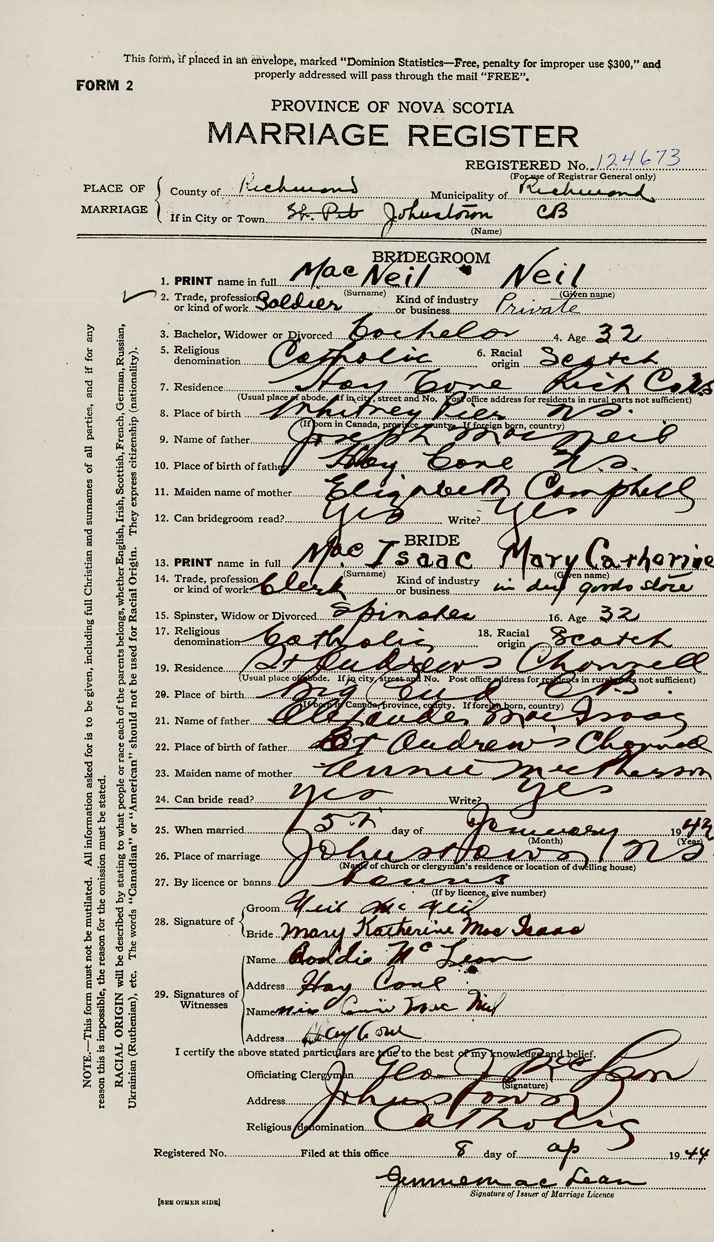 This form, if placed in an envelope, marked “Dominion Statistics—Free, penalty for improper use $300,” and
properly addressed will pass through the mail “FREE”.
FORM 2
PROVINCE OF NOVA SCOTIA
MARRIAGE REGISTER
REGISTERED No. 124673
(For use of Registrar General only)
PLACE OF MARRIAGE
County of Richmond Municipality of Richmond
If in City or Town Johnstown CB
(Name)
BRIDEGROOM
1. PRINT name in full MacNeil Neil
(Surname) (Given name)
2. Trade, profession or kind of work Soldier Kind of industry or business Private
3. Bachelor, Widower or Divorced Bachelor 4. Age 32
5. Religious denomination Catholic 6. Racial origin Scotch
7. Residence Hay Cove Rich Co NS
(Usual place of abode. If in city, street and No. Post office address for residents in rural parts not sufficient)
8. Place of birth Whitney Pier NS.
(If born in Canada, province, county. If foreign born, country)
9. Name of father Joseph MacNeil
10. Place of birth of father Hay Cove NS.
11. Maiden name of mother Elizabeth Campbell
12. Can bridegroom read? Yes Write? Yes
BRIDE
13. PRINT name in full MacIsaac Mary Catherine
(Surname) (Given name)
14. Trade, profession or kind of work Clerk Kind of industry or business in dry goods store
15. Spinster, Widow or Divorced Spinster 16. Age 32
17. Religious denomination Catholic 18. Racial origin Scotch
19. Residence St Andrews Channell
(Usual place of abode. If in city, street and No. Post office address for residents in rural parts not sufficient)
20. Place of birth Big C.B.
(If born in Canada, province, county. If foreign born, country)
21. Name of father Alexander MacIsaac
22. Place of birth of father St Andrew's Channell
23. Maiden name of mother Annie McPherson
24. Can bride read? Yes Write? Yes
25. When married 5th day of January 19
(Month) (Year)
26. Place of marriage Johnstown NS
(Name of church or clergyman's residence or location of dwelling house)
27. By licence or banns banns
(If by licence, give number)
28. Signature of
Groom Neil McNeil
Bride Mary Katherine Mac Isaac
29. Signatures of Witnesses
Name Roddie McLean
Address Hay Cove
Name Miss Annie Mac Neil
Address Hay Cove
I certify the above stated particulars are true to the best of my knowledge and belief.
Officiating Clergyman Geo J McLean
(Signature)
Address Johnstown
Religious denomination Catholic
Registered No. Filed at this office 8 day of ap 1944
Jennie mac Lean
Signature of Issuer of Marriage Licence
[SEE OTHER SIDE]
NOTE.—This form must not be mutilated. All information asked for is to be given, including full Christian and surnames of all parties, and if for any
reason this is impossible, the reason for the omission must be stated.
RACIAL ORIGIN will be described by stating to what people or race each of the parents belongs, whether English, Irish, Scottish, French, German, Russian,
Ukrainian (Ruthenian), etc. The words “Canadian” or “American” should not be used for Racial Origin. They express citizenship (nationality).